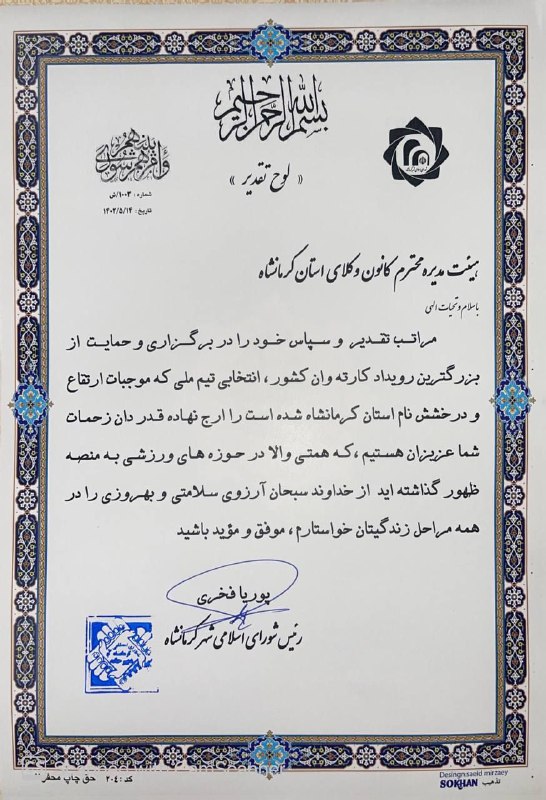 بسم الله الرحمن الرحیم
وأمرهم شوری بینهم
« لوح تقدیر »
شماره : ۱۰۰۳/ش
تاریخ : ۱۴۰۲/۵/۱۴
هیئت مدیره محترم کانون وکلای استان کرمانشاه
باسلام و تحیات الهی
مراتب تقدیر و سپاس خود را در برگزاری و حمایت از
بزرگترین رویداد کارته وان کشور ، انتخابی تیم ملی که موجبات ارتقاع
و درخشش نام استان کرمانشاه شده است را ارج نهاده قدر دان زحمات
شما عزیزان هستیم ، که همتی والا در حوزه های ورزشی به منصه
ظهور گذاشته اید از خداوند سبحان آرزوی سلامتی و بهروزی را در
همه مراحل زندگیتان خواستارم ، موفق و مؤید باشید
پوریا فخری
رئیس شورای اسلامی شهر کرمانشاه
کد : ۲۰۴ حق چاپ محفوظ
Desing:saeld mirzaey
SOKHAN تذهیب